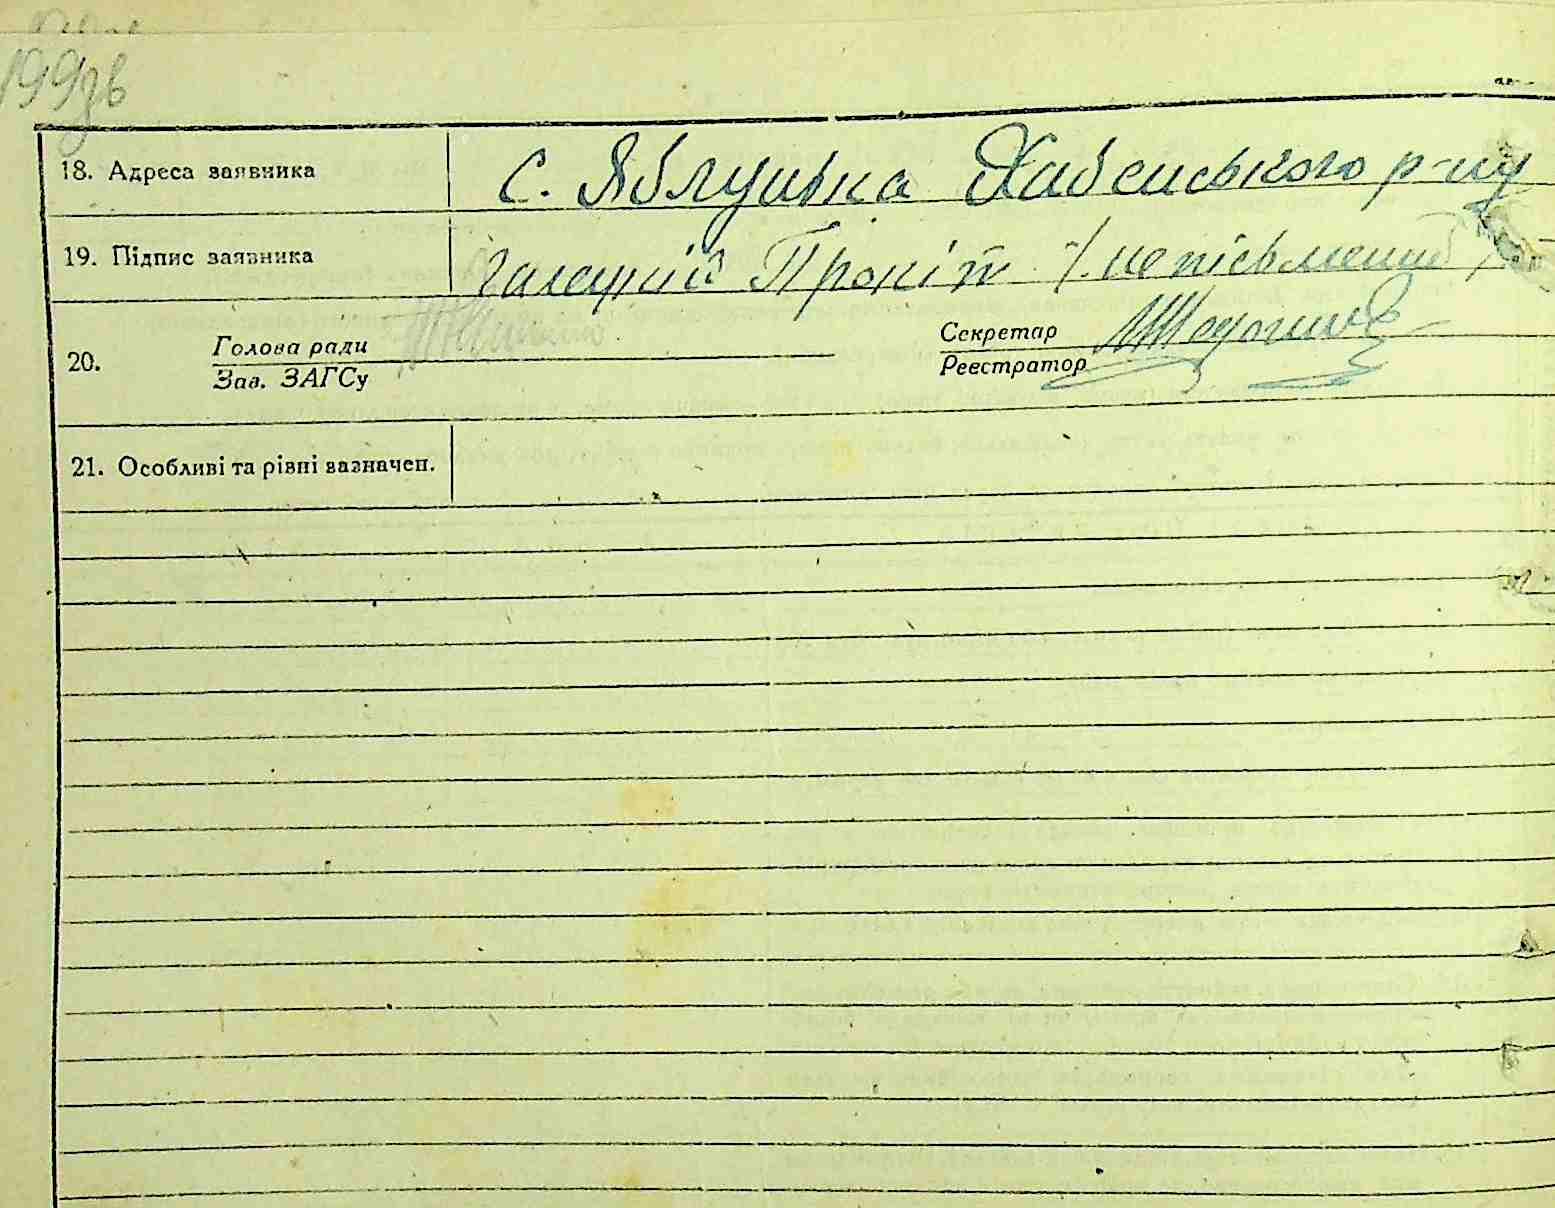 199зв
18. Адреса заявника с. Яблунька Хабенського р-ну
19. Підпис заявника Галецкий Прокіп /. непісьменний /
20. Голова ради Секретар
Зав. ЗАГСу Реестратор
21. Особливі та рівні вазначен.